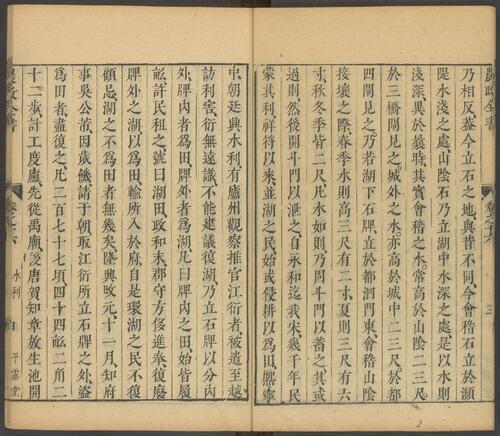 乃相反葢今立石之地與昔不同今會稽石立於瀕
隄水淺之處山陰石乃立湖中水深之處是以水
淺深異於曩時其實會稽之水常高於山陰二三尺
於三橋閘見之城外之水亦高於城中二三尺於都
四閘見之乃若湖下石牌立於都泗門東會稽山陰
接壤之際春季水則高三尺有二寸夏則三尺有六
寸秋冬季皆二尺凡水如則乃固斗門以蓄之其或
過則然後開斗門以泄之自永和迄我宋幾千年民
蒙其利祥符以來並湖之民始或侵耕以爲田熈寧
中朝廷興水利有廬州觀察推官江衍者被遣至越
訪利害衍無遠識不能建議復湖乃立石牌以分內
外牌內者爲田牌外者爲湖凡牌內之田始皆履
畝許民租之號曰湖田政和末郡守方侈進奉復廢
牌外之湖以爲田輸所入於府自是環湖之民不復
顧忌湖之不爲田者無幾矣隆興攺元十一月知府
事吳公芾因歲饑請于朝取江衍所立石牌之外盜
爲田者盡復之凡二百七十七頃四十四畝二角二
十二步計工度廬先從禹廟後唐賀知章放生池開
農政全書
卷之十六
水利
平露堂